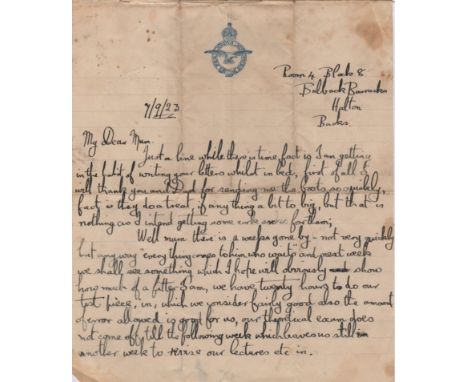 Room 4 Block 8
Bulback Barracks
Halton
Bucks.
7/9/23
My Dear Mum.
Just a line while there is time, fact is I am getting
in the habit of writing your letters whilst in bed, first of all I
will thank you and Dad for sending me the boots so quickly,
fact is they do a treat if anything a bit to big, but that is
nothing as I intend getting some for them;
Well mum there is a weeks gone by - not very quickly
but any way "everything comes to him who waits" and next week
we shall see something which I hope will obviously show
how much of a fitter I am, we have twenty hours to do our
test piece, in, which we consider fairly good also the amount
of error allowed is great for us, our theoretical exam does
not come off till the following week which leaves us still
another week to revise our lectures etc in.